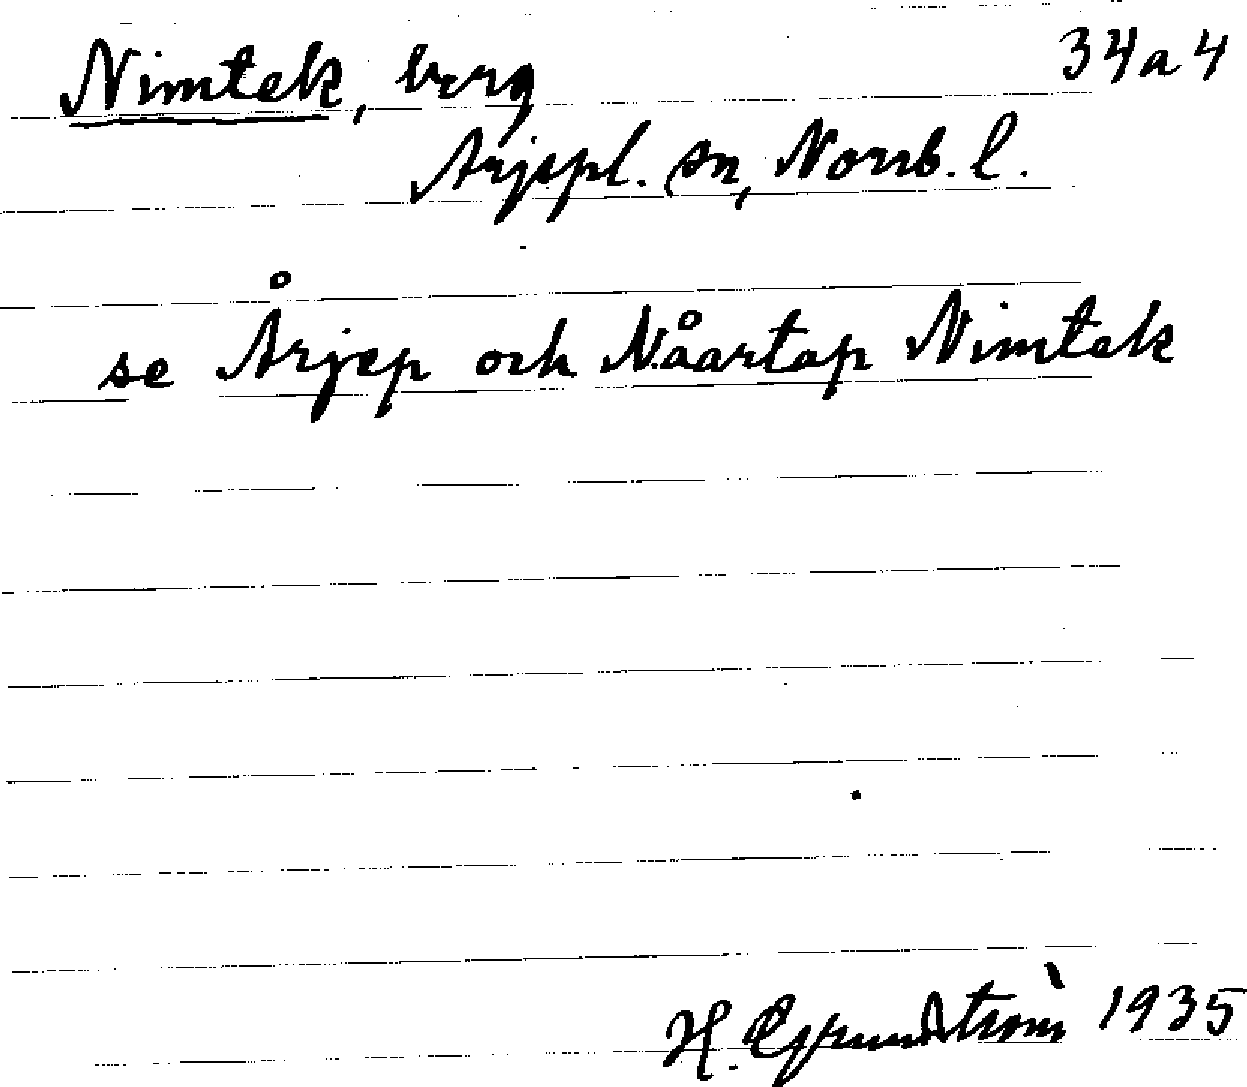 Nimtek, berg 34a4
Arjepl. sn, Norrb. l.
se Årjep och Nåartap Nimtek
H. Grundström 1935